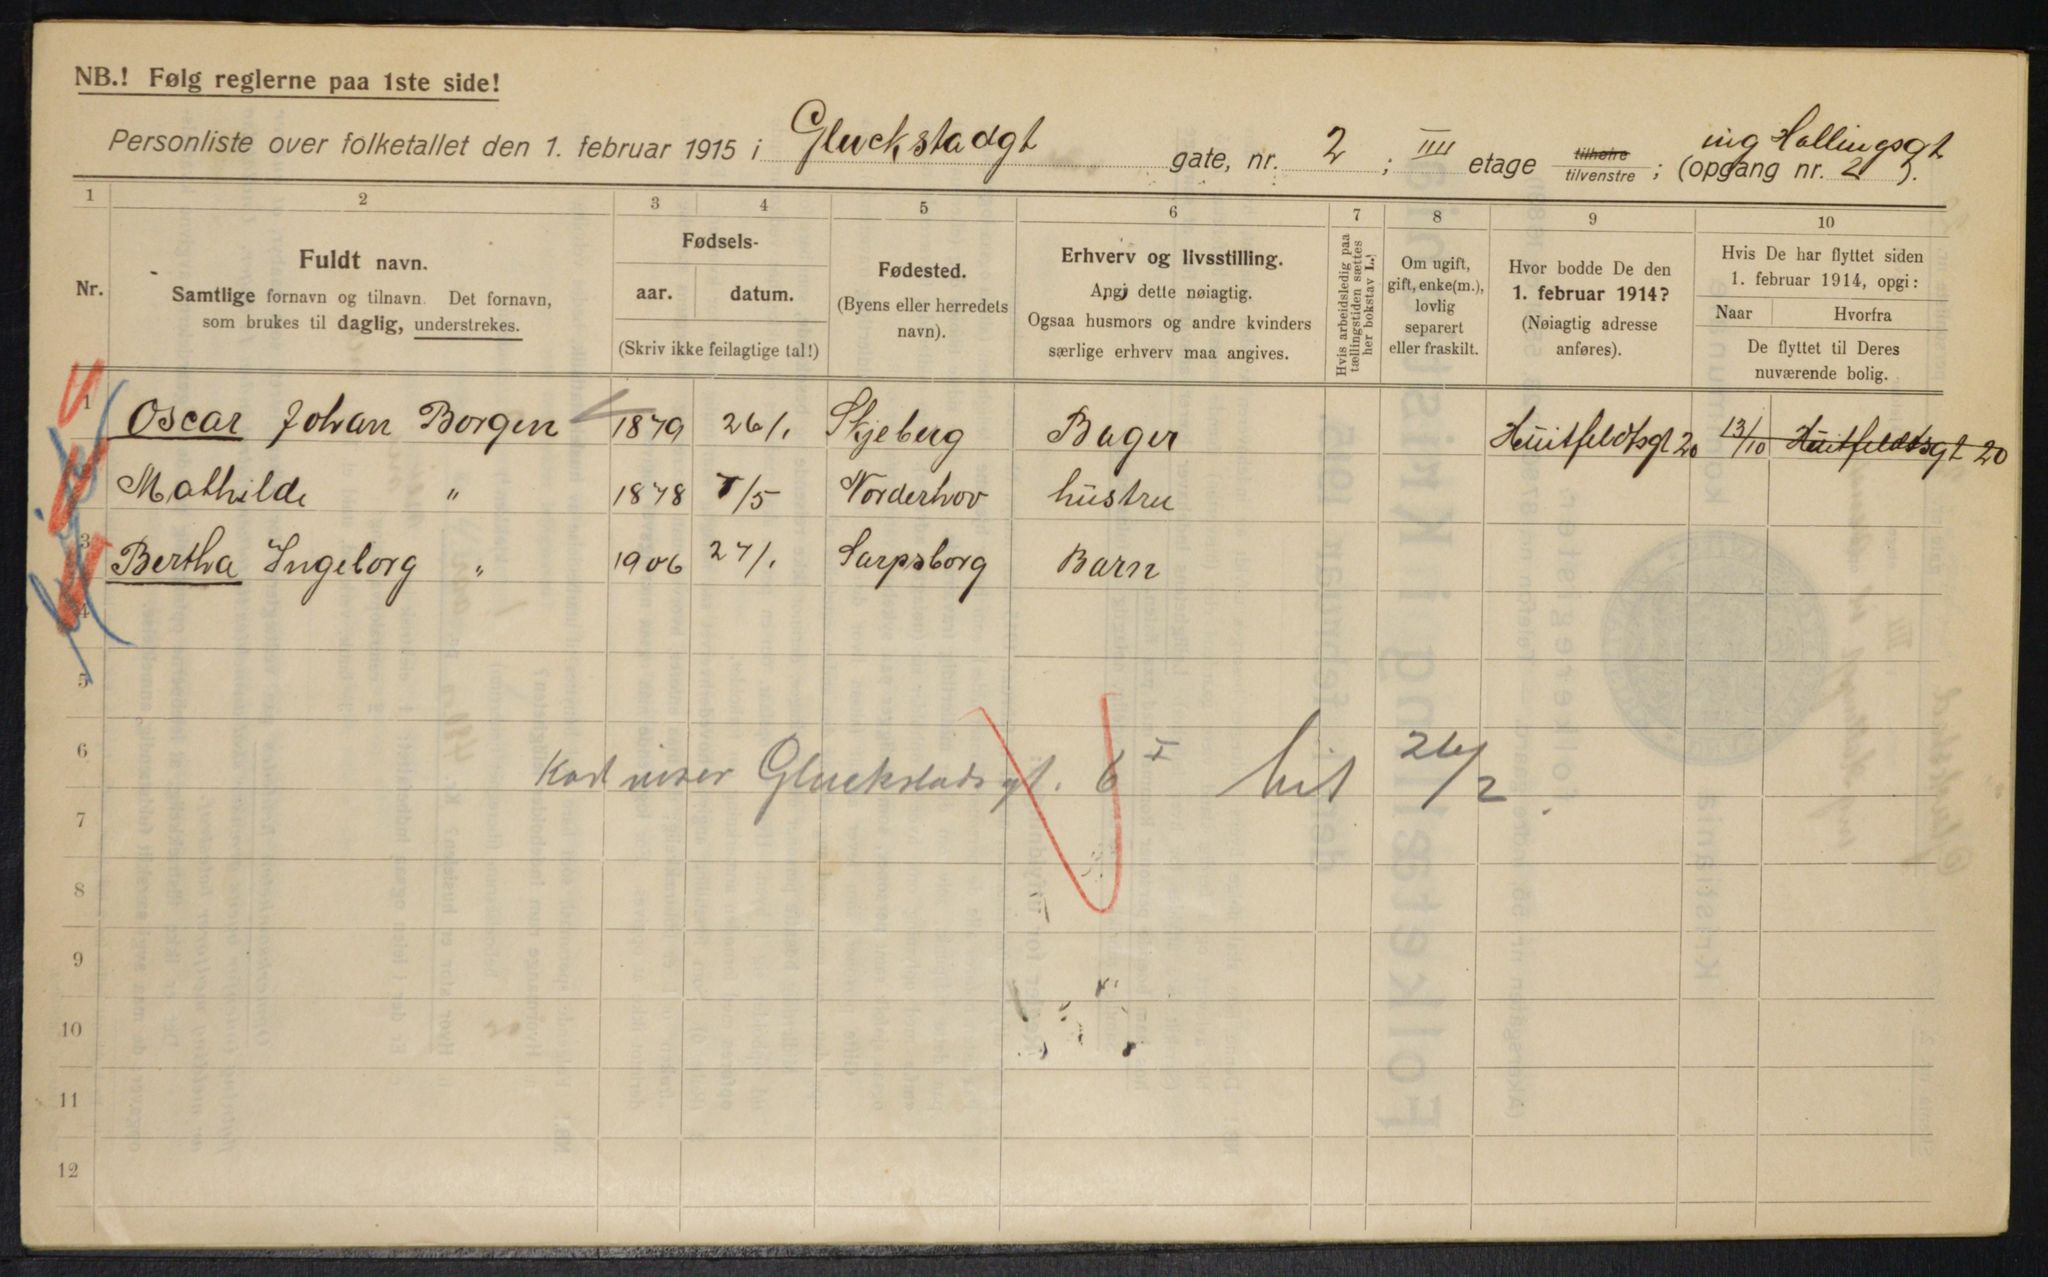 NB.! Følg reglerne paa 1ste side!
ing Hallingsgt
Personliste over folketallet den 1. februar 1915 i Gluckstadgt gate, nr. 2 ; IIII etage tilhøire tilvenstre ; (opgang nr. 2 ).
1 2 3 4 5 6 7 8 9 10
Nr.
Fuldt navn.
Samtlige fornavn og tilnavn. Det fornavn,
som brukes til daglig, understrekes.
Fødsels-
aar. datum.
(Skriv ikke feilagtige tal!)
Fødested.
(Byens eller herredets
navn).
Erhverv og livsstilling.
Angi dette nøiagtig.
Ogsaa husmors og andre kvinders
særlige erhverv maa angives.
Hvis arbeidsledig paa
tællingstiden sættes
her bokstav L.
Om ugift,
gift, enke(m.),
lovlig
separert
eller fraskilt.
Hvor bodde De den
1. februar 1914?
(Nøiagtig adresse
anføres).
Hvis De har flyttet siden
1. februar 1914, opgi:
Naar Hvorfra
De flyttet til Deres
nuværende bolig.
1 Oscar Johan Borgen 1879 26/1 Skjeberg Bager Huitfeldtsgt 20 13/10 Huitfeldtsgt 20
Mathilde " 1878 /5 Norderhov hustru
3 Bertha Ingeborg " 1906 27/1 Sarpsborg Barn
4
5
6
Kort viser Gluckstadsgt. 6 I hit 26/2
7
8
9
10
11
12